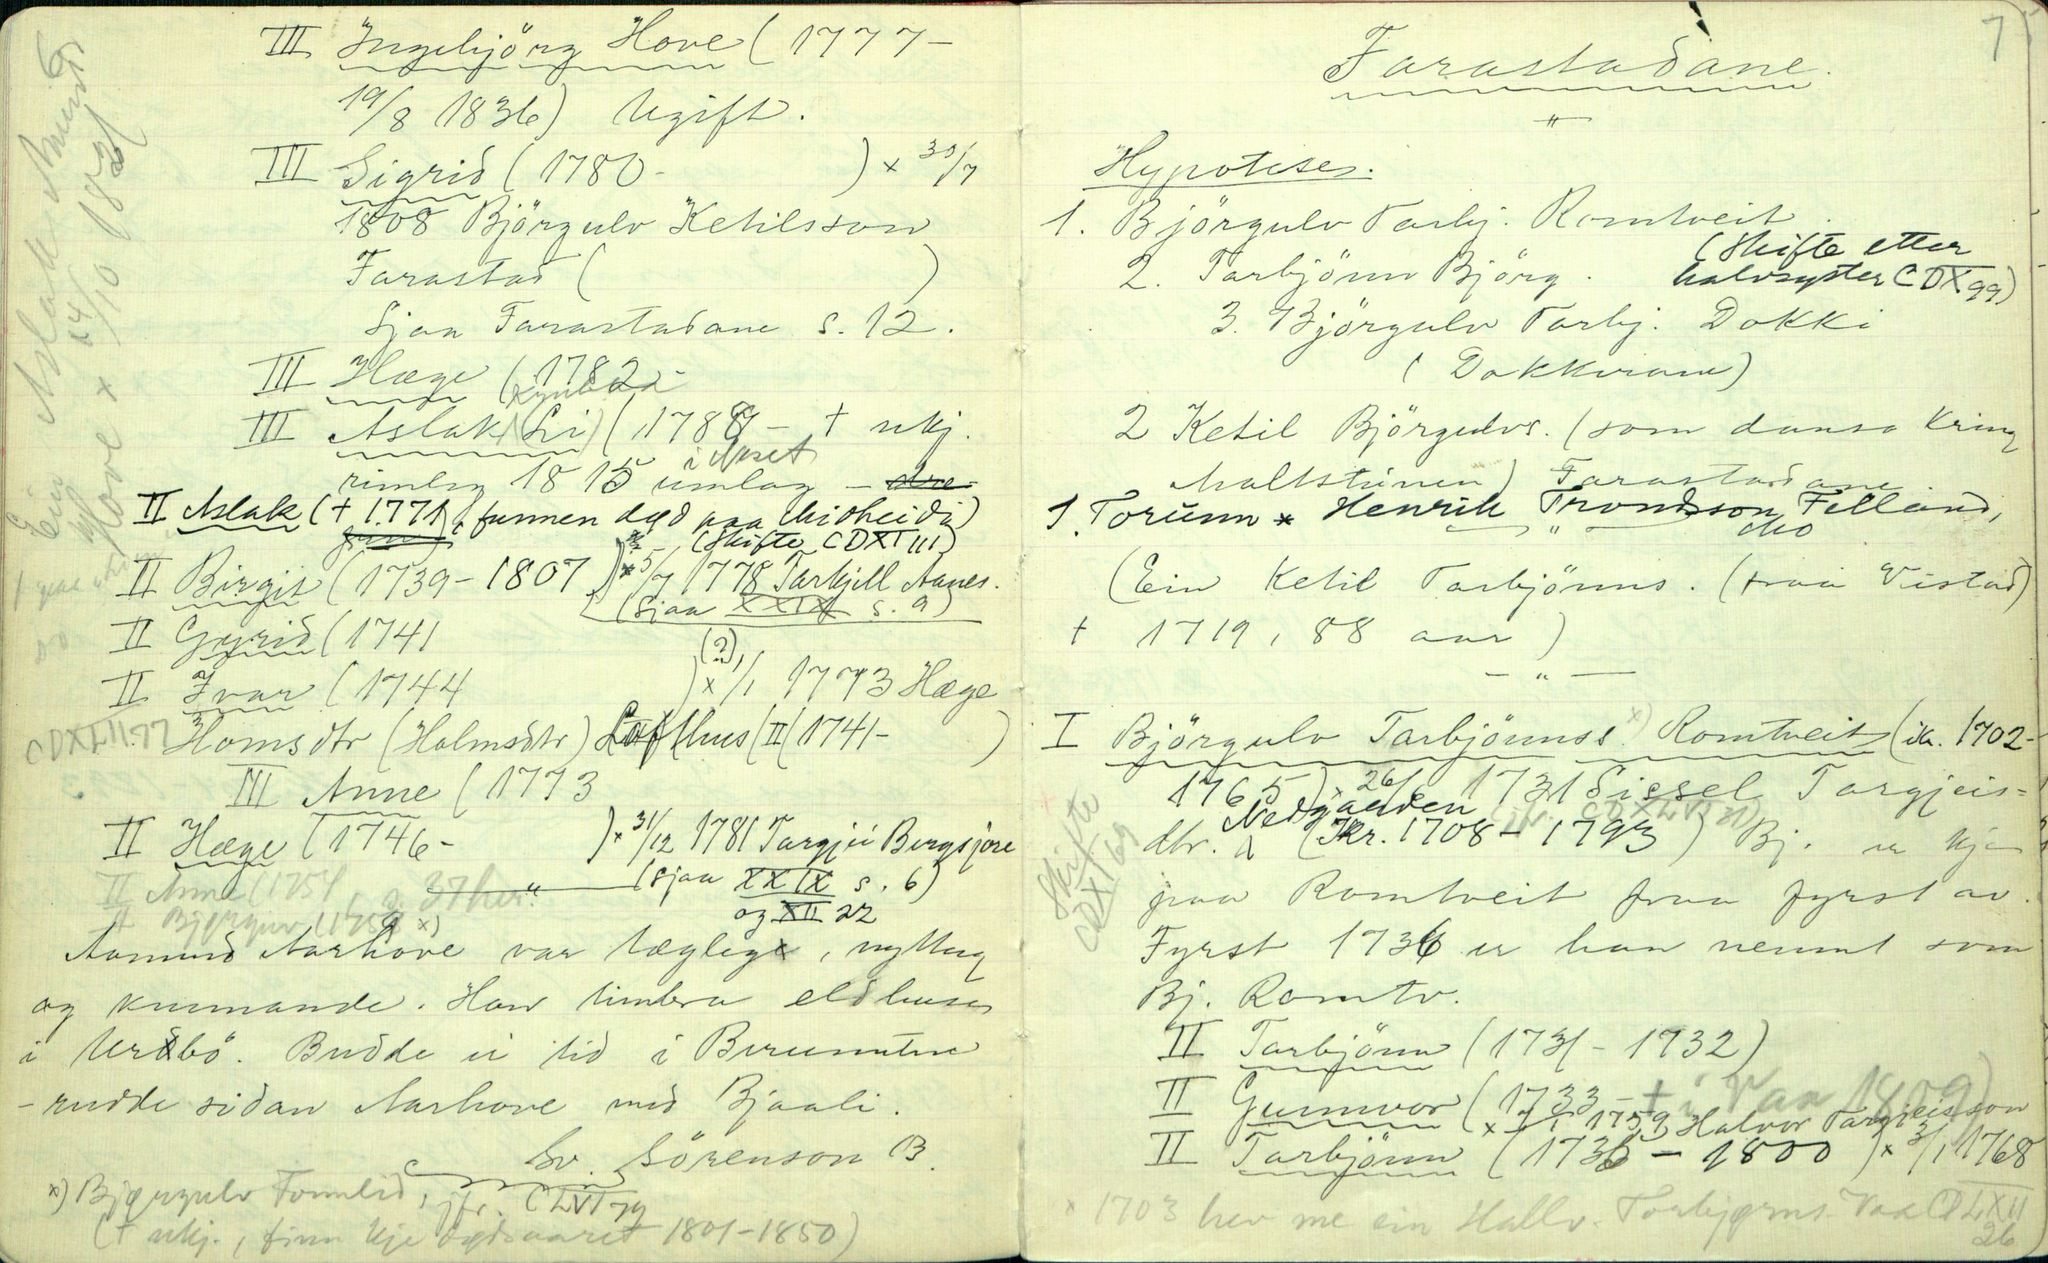 III Ingebjörg Hove (1777-
19/8 1836) Ugift.
III Sigrid (1780- ) x 30/7
1808 Björgulv Ketilsson
Farastad ( )
Sjaa Farastadane s. 12.
III Hæge (1782-
III Aslak (Li) (1788 - † ukj.
rimleg 1815 umlag -
II Aslak († 1771, funnen død paa Midheidi)
(Skifte CDXI 111)
II Birgit (1739-1807) x 5/7 1778 Tarkjell Aanes.
(sjaa XXIX s. 9)
II Gyrid (1741
II Ivar (1744 ) (?) x 1/1 1773 Hæge
CDXLII 77
Homsdtr (Holmsdtr) Lofthus (II (1741- )
III Anne (1773
II Hæge (1746- ) x 31/12 1781 Targjei Bergsjöre
(sjaa XXIX s. 6)
og XII 22
II Anne (1751
Aamund Aarhove var tægleg, nytteg
og kunnande. Han timbra eldhuset
i Urdbö. Budde ei tid i Berunntun
- rudde sidan Aarhove med Bjaali.
Sv. Sörenson B.
x) Bjørgulv Fonnlid, jfr. CLVI 74
(† ukj., finn ikje dødsaaret 1801-1850)
Ein Aslak Aamunds
Hove x 14/10 1821
7
Farastadane.
"
Hypotese.
1. Björgulv Tarbj. Romtveit.
2. Tarbjönn Björg. (Skifte etter
halvsyster CDX 99)
3. Björgulv Tarbj. Dokki
(Dokkvann)
2 Ketil Björgulvs. (som dansa kring
maltstünen) Farastadane
1. Torunn x Henrik Trondsson Felland,
Mo
(Ein Ketil Tarbjönns. (fraa Vistad)
† 1719, 88 aar)
- " -
I Björgulv Tarbjönnss. x) Romtveit (ik. 1702-
1765) x 26/6 1731 Sissel Targjeis-
dtr. Nedgarden (Kr. 1708-1793) Bj. er ikje
Skifte CDXI 69
paa Romtveit fraa fyrst av.
Fyrst 1736 er han nemnt som
Bj. Romtv.
II Tarbjönn (1731-1732)
II Gunnvor (1733- † i Vaa 1809)
x 1/1 1759 Halvor Targjeisson
II Tarbjönn (1736 - 1800) x 3/1 1768
x 1703 hev me ein Hallv. Torbjørns. Vaa CDLXII
26